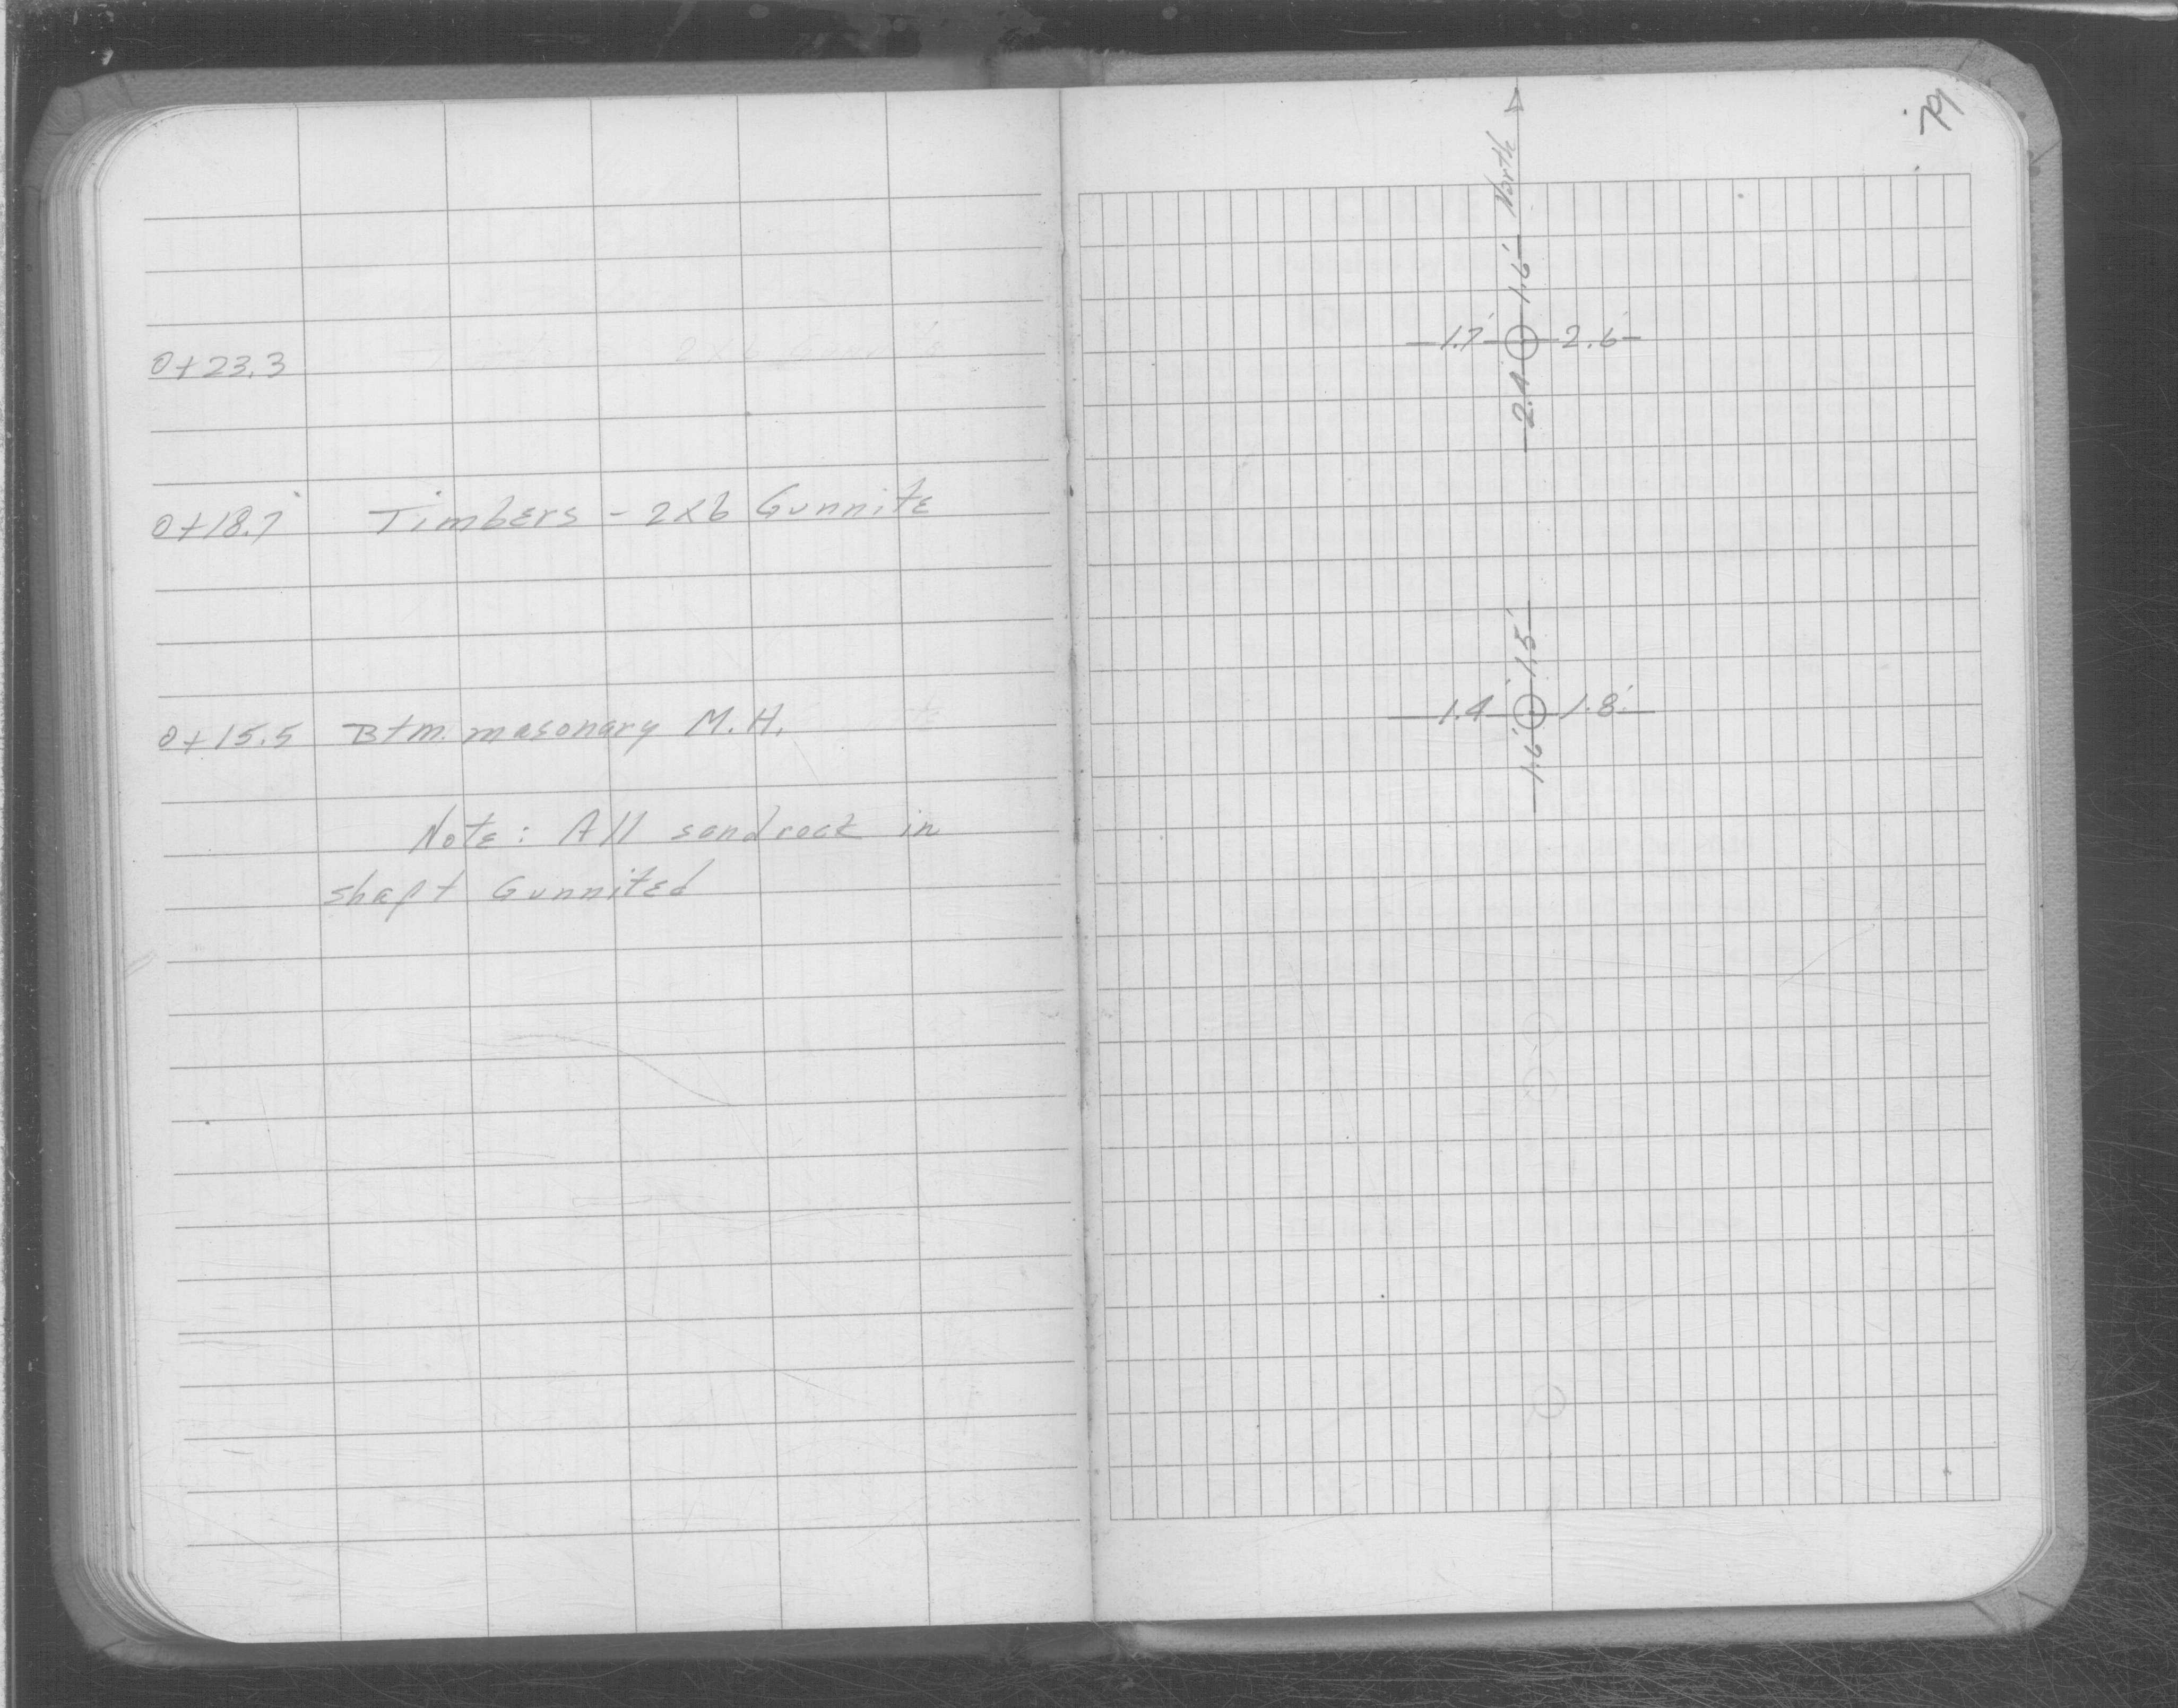 79
North
1.6'
0+23.3
1.7' 2.6'
2.4
0+18.7 Timbers - 2x6 Gunnite
1.5'
0+15.5 Btm. masonary M.H.
1.4' 1.8'
1.6'
Note: All sandrock in
shaft Gunnited